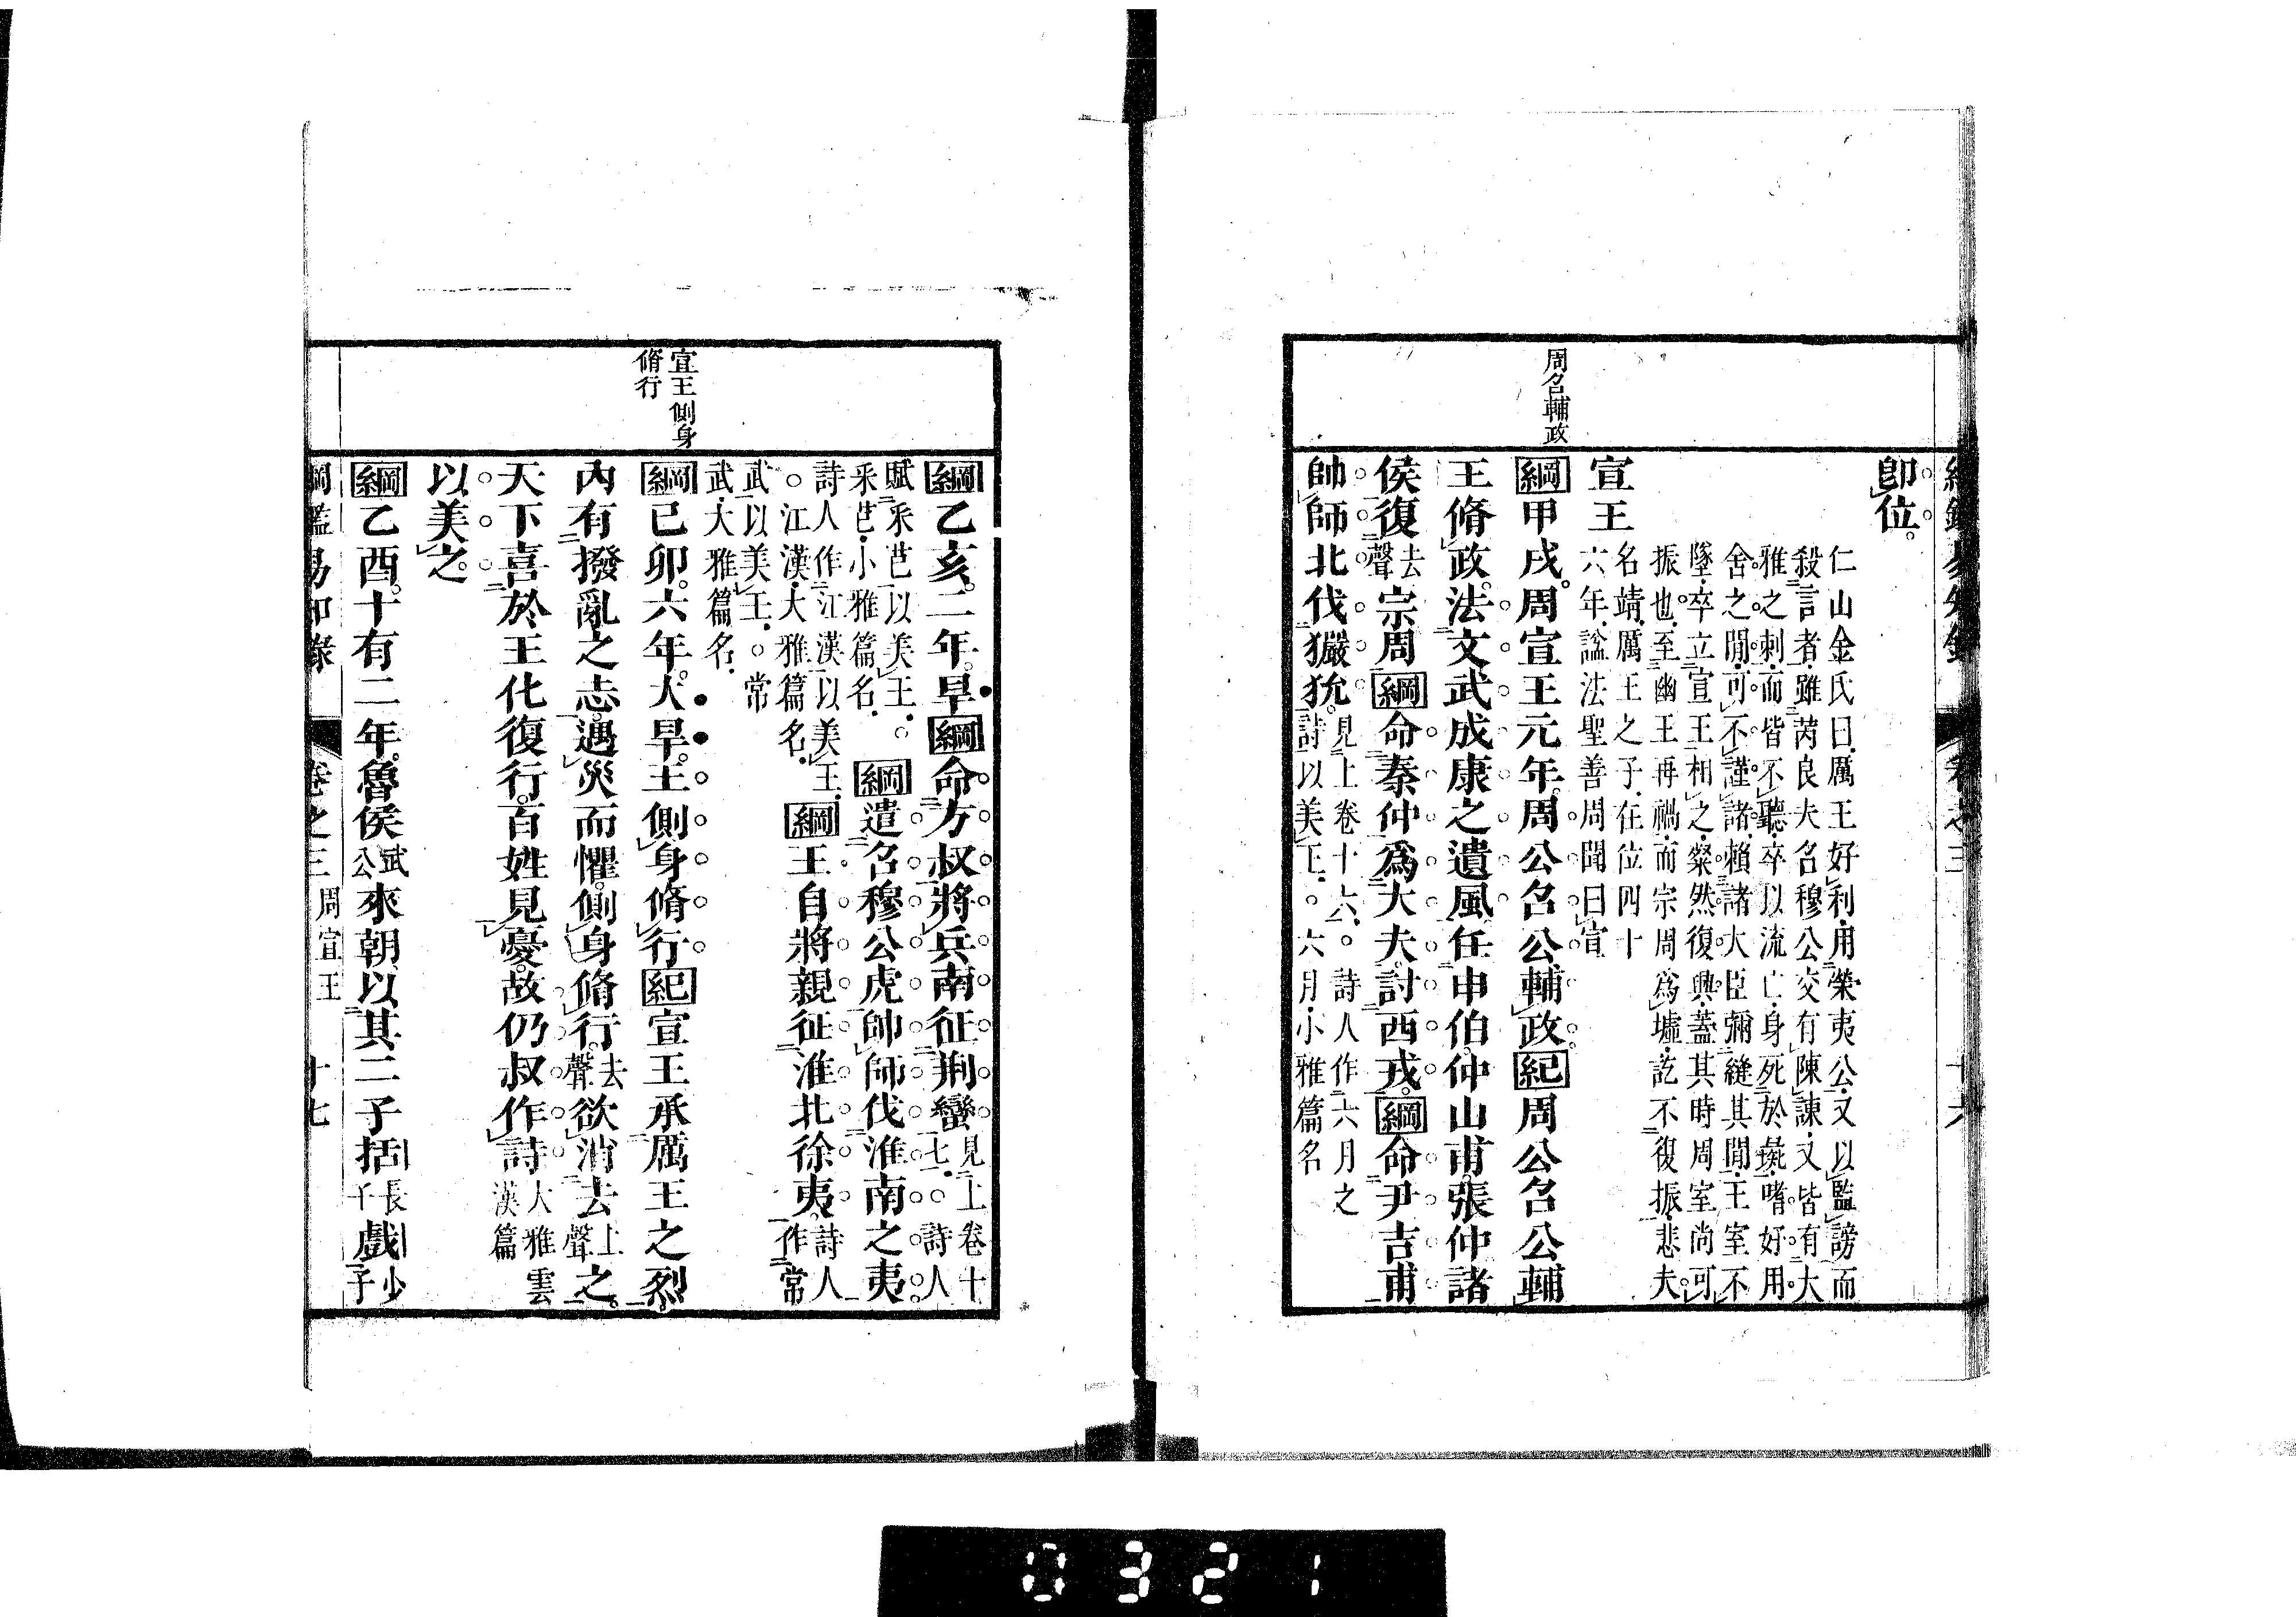 周召輔政
即位。
仁山金氏曰.厲王好利.用榮夷公.又以監謗而
殺言者.雖芮良夫召穆公交有陳諫.又皆有大
雅之刺.而皆不聽.卒以流亡.身死於彘.嗜好用
舍之閒.可不謹諸.賴諸大臣彌縫其閒.王室不
墜.卒立宣王.相之.粲然復興.蓋其時周室尚可
振也.至幽王再禍.而宗周爲墟.訖不復振.悲夫
宣王名靖.厲王之子.在位四十六年.諡法聖善周聞曰宣
綱甲戌。周宣王元年。周公召公輔政。紀周公召公輔
王脩政。法文武成康之遺風。任申伯。仲山甫。張仲諸
侯復去聲宗周綱命秦仲爲大夫。討西戎。綱命尹吉甫
帥師北伐玁狁。見上卷十六.○詩人作六月之詩以美王.○六月.小雅篇名
宣王側身脩行
綱乙亥。二年。旱綱命方叔將兵南征荆蠻見上卷十七.○詩人
賦采芑以美王.○采芑.小雅篇名.綱遣召穆公虎帥師伐淮南之夷
詩人作江漢以美王.○江漢.大雅篇名.綱王自將親征淮北徐夷。詩人作常
武以美王.○常武.大雅篇名.
綱已卯。六年。大旱。王側身脩行紀宣王承厲王之烈。
內有撥亂之志。遇災而懼。側身脩行。去聲欲消去上聲之。
天下喜於王化復行。百姓見憂。故仍叔作詩大雅雲漢篇
以美之。
綱乙酉。十有二年。魯侯武公來朝。以其二子括長子戲少子
綱鑑易知錄 卷之三 周宣王 十七
0321